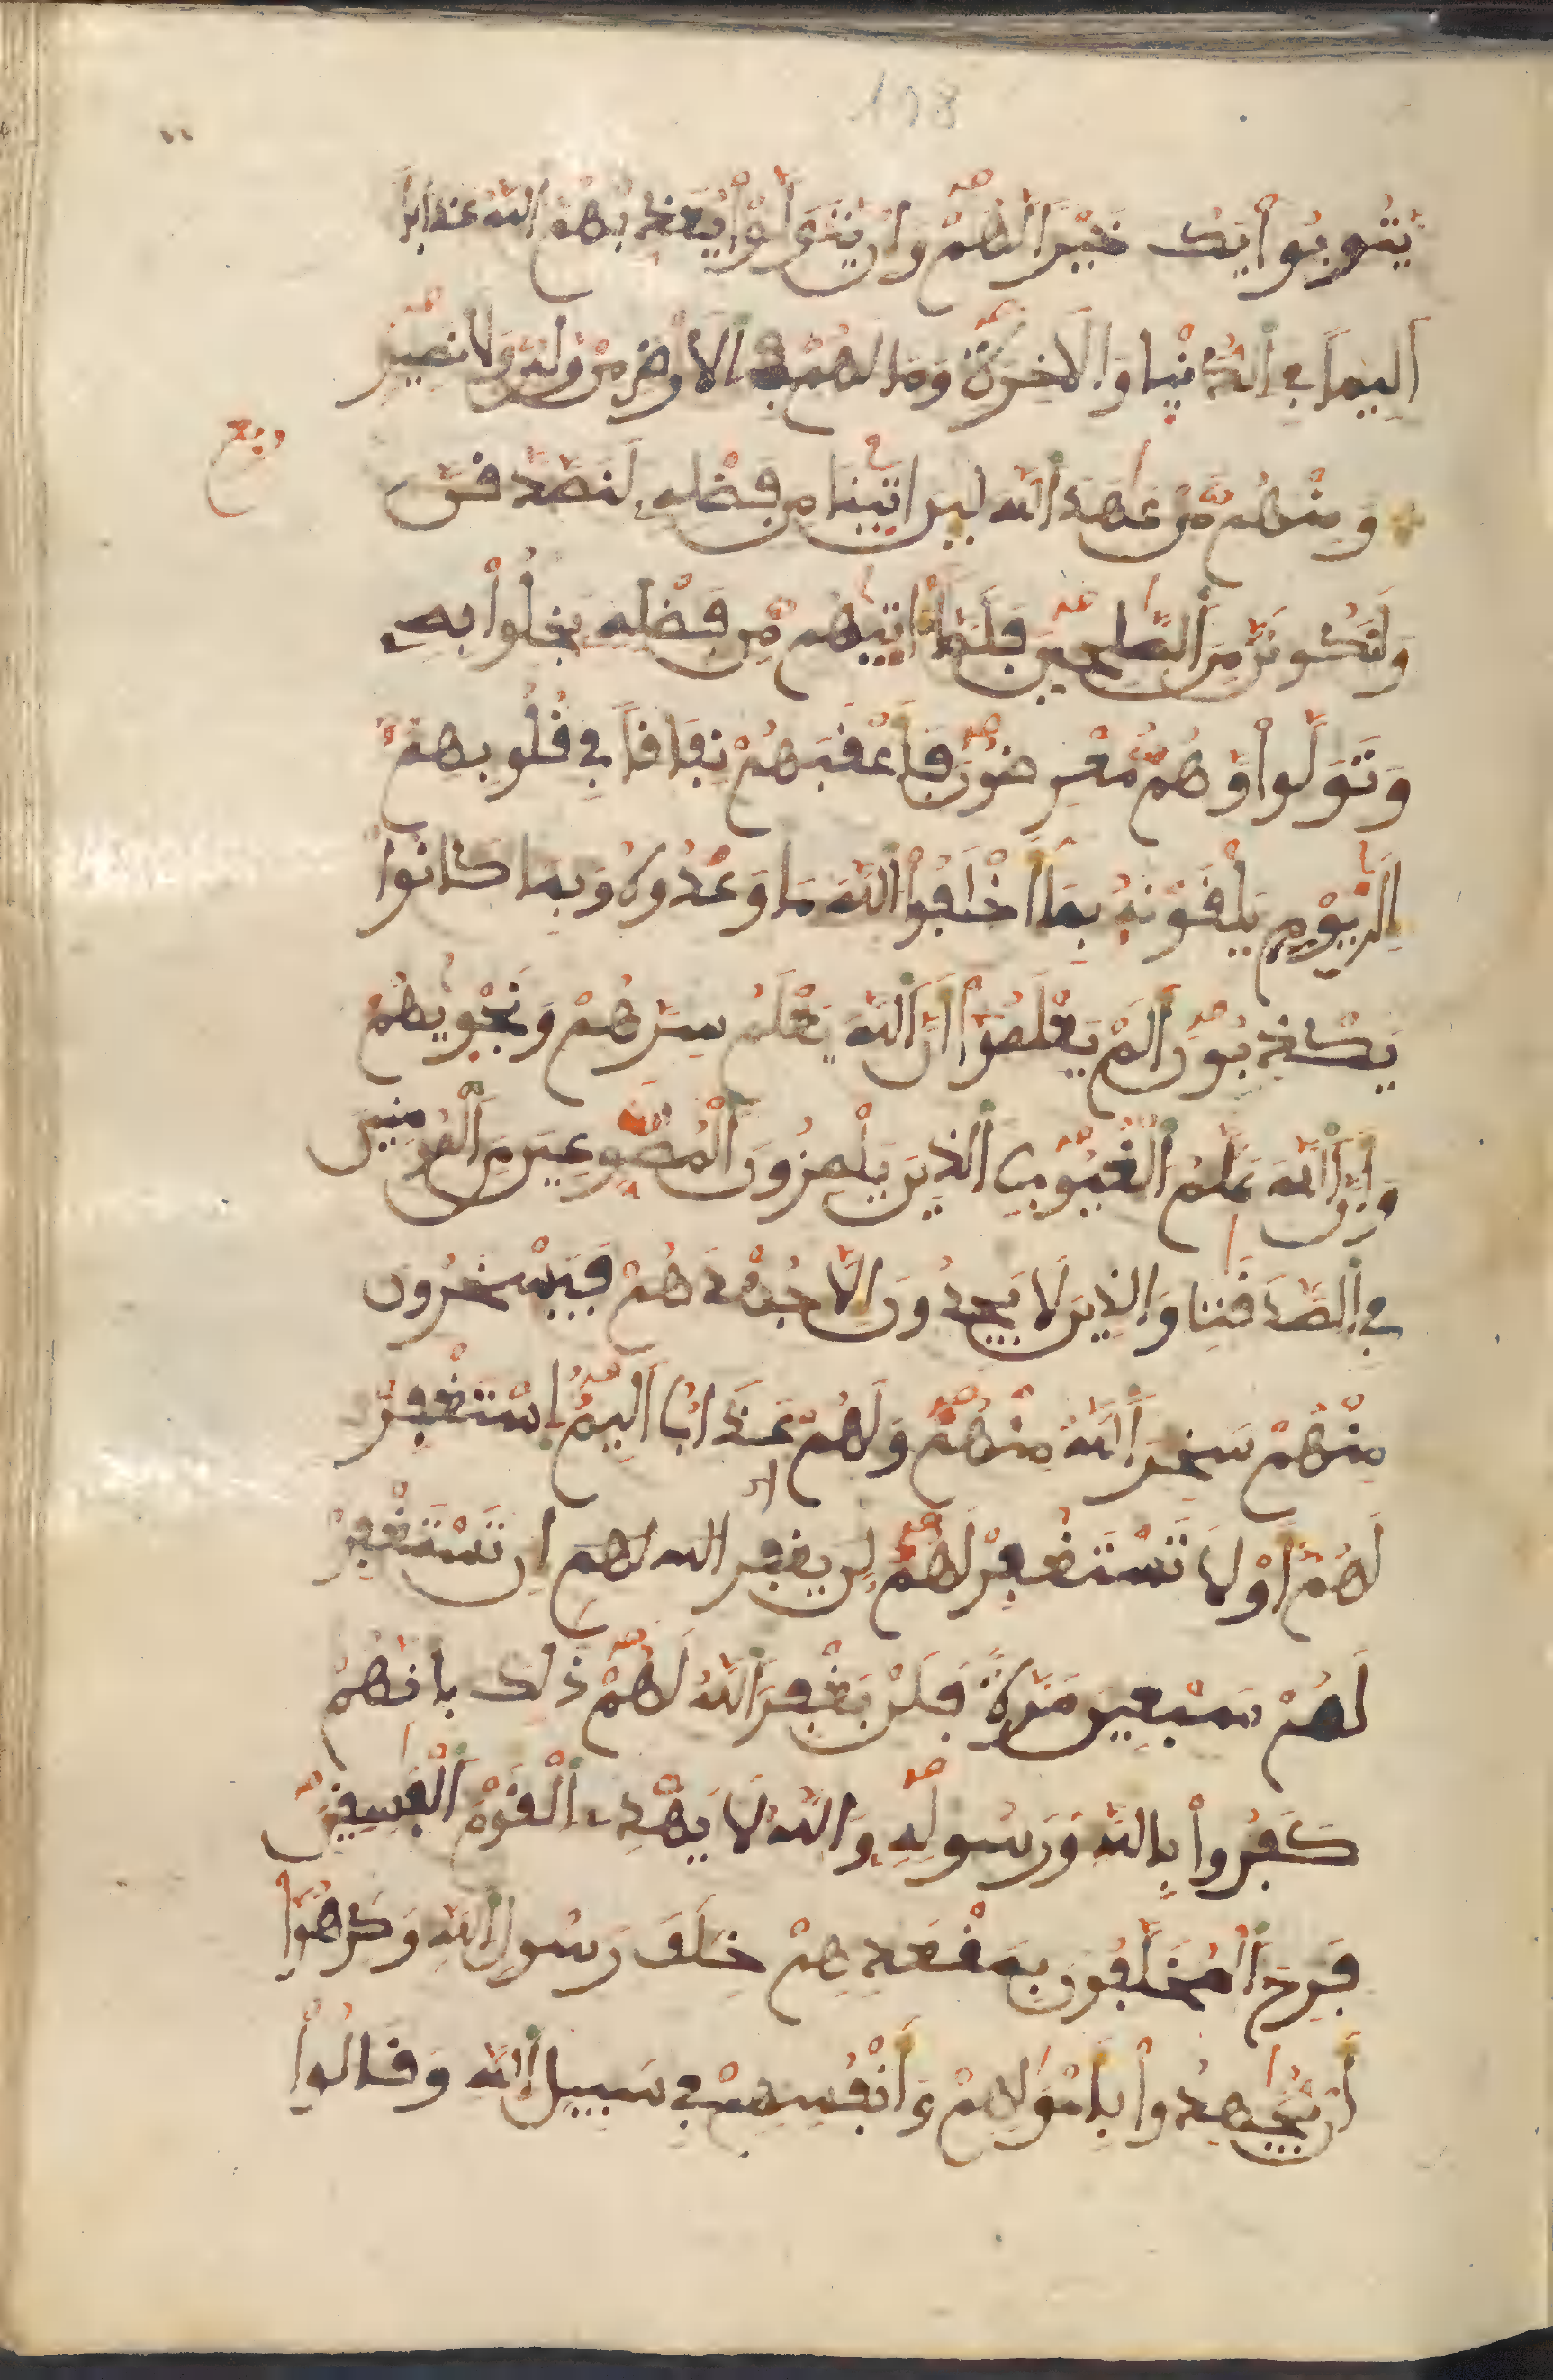 198
يَتُوبُوا۟ يَكُ خَيْرًا لَّهُمْ وَإِنْ يَتَوَلَّوْا۟ يُعَذِّبْهُمُ اللَّهُ عَذَابًا
أَلِيمًا فِي الدُّنْيَا وَالْأَخِرَةِ وَمَا لَهُمْ فِي الْأَرْضِ مِنْ وَّلِيٍّ وَّلَا نَصِيرٍ
ربع
وَمِنْهُم مَّنْ عَٰهَدَ اللَّهَ لَئِنَ اتَيٰنَا مِن فَضْلِهِ لَنَصَّدَّقَنَّ
وَلَنَكُونَنَّ مِنَ الصَّٰلِحِينَ فَلَمَّا ءَاتَيٰهُم مِّن فَضْلِهِ بَخِلُوا۟ بِهِ
وَتَوَلَّوا۟ وَّهُم مُّعْرِضُونَ فَأَعْقَبَهُمْ نِفَاقًا فِي قُلُوبِهِمُ
إِلَىٰ يَوْمِ يَلْقَوْنَهُ بِمَا أَخْلَفُوا۟ اللَّهَ مَا وَعَدُوهُ وَبِمَا كَانُوا۟
يَكْذِبُونَ أَلَمْ يَعْلَمُوا۟ أَنَّ اللَّهَ يَعْلَمُ سِرَّهُمْ وَنَجْوٰيهُمْ
وَأَنَّ اللَّهَ عَلَّٰمُ الْغُيُوبِ الَّذِينَ يَلْمِزُونَ الْمُطَّوِّعِينَ مِنَ الْمُومِنِينَ
فِي الصَّدَقَٰتِ وَالَّذِينَ لَا يَجِدُونَ إِلَّا جُهْدَهُمْ فَيَسْخَرُونَ
مِنْهُمْ سَخِرَ اللَّهُ مِنْهُمْ وَلَهُمْ عَذَابٌ أَلِيمٌ اِسْتَغْفِرْ
لَهُمْ أَوْ لَا تَسْتَغْفِرْ لَهُمْ لن يغفر الله لهم إِن تَسْتَغْفِرْ
لَهُمْ سَبْعِينَ مَرَّةً فَلَنْ يَّغْفِرَ اللَّهُ لَهُمْ ذَٰلِكَ بِأَنَّهُمْ
كَفَرُوا۟ بِاللَّهِ وَرَسُولِهِ وَاللَّهُ لَا يَهْدِي الْقَوْمَ الْفَٰسِقِينَ
فَرِحَ الْمُخَلَّفُونَ بِمَقْعَدِهِمْ خِلَٰفَ رَسُولِ اللَّهِ وَكَرِهُوا۟
أَنْ يُّجَٰهِدُوا۟ بِأَمْوَٰلِهِمْ وَأَنْفُسِهِمْ فِي سَبِيلِ اللَّهِ وَقَالُوا۟